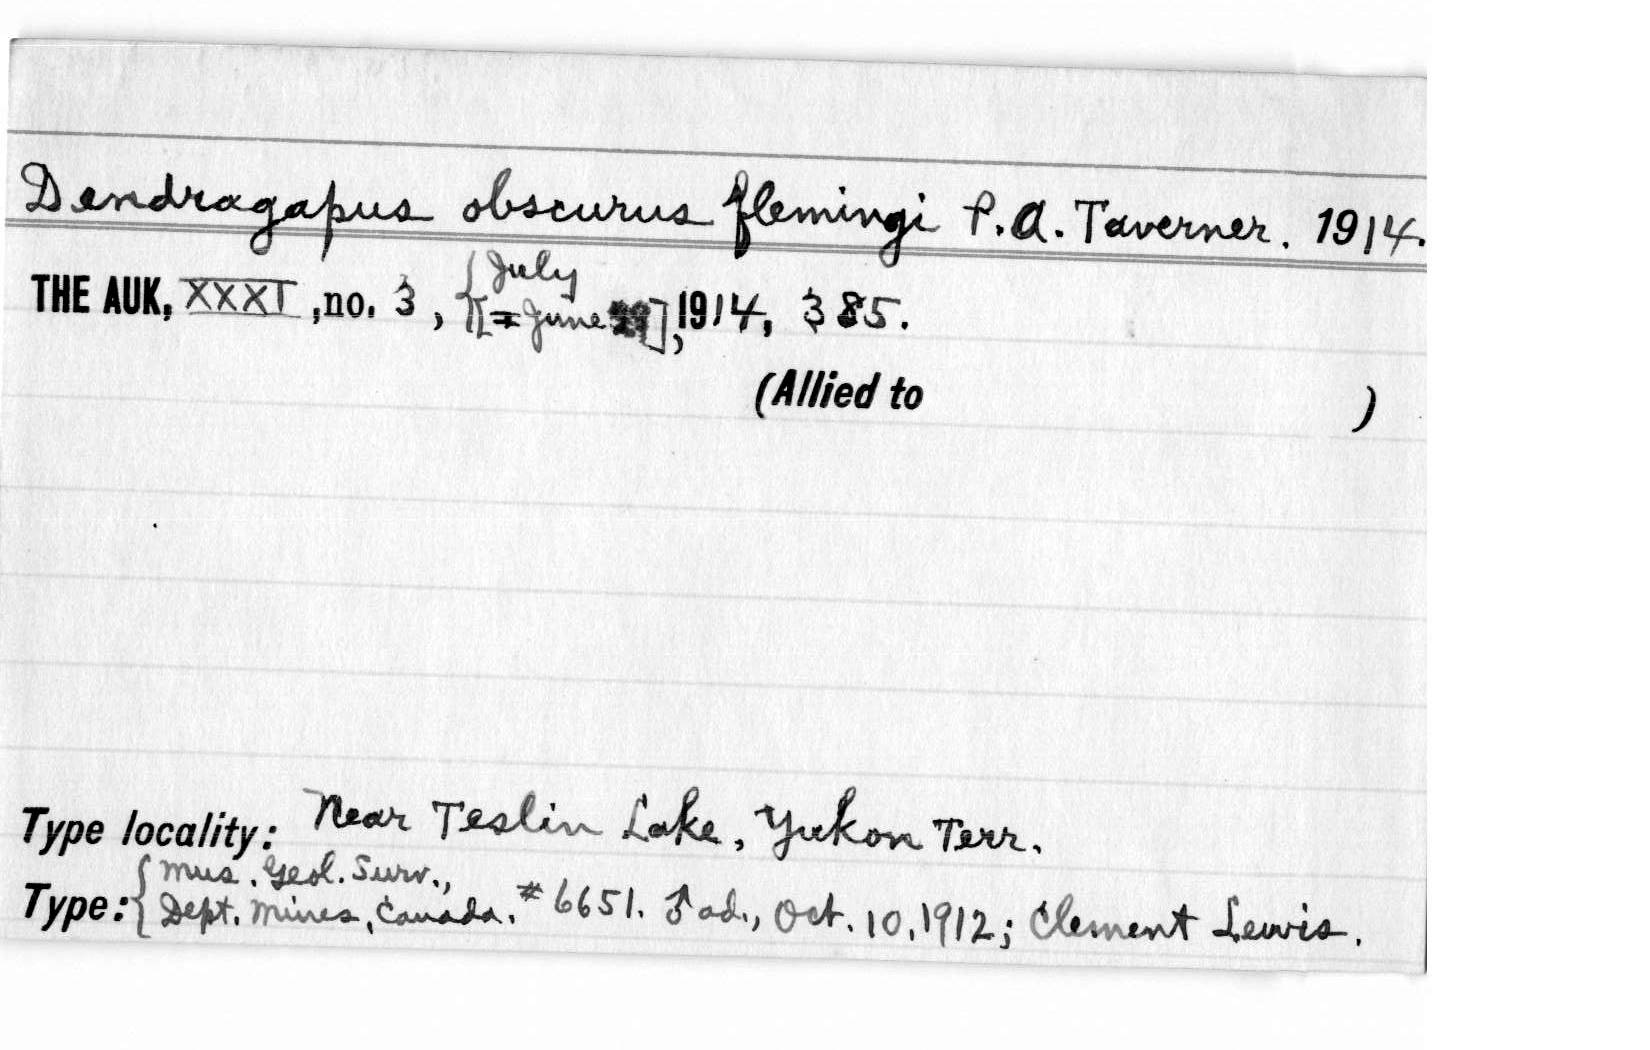 Dendragapus obscurus flemingi P.A. Taverner. 1914.
THE AUK, XXXI, no. 3, { July [= June ], 1914, 385.
(Allied to )
Type locality: Near Teslin Lake, Yukon Terr.
Type: { Mus. Geol. Surv.,
Dept. Mines, Canada. # 6651. ♂ ad., Oct. 10, 1912; Clement Lewis.